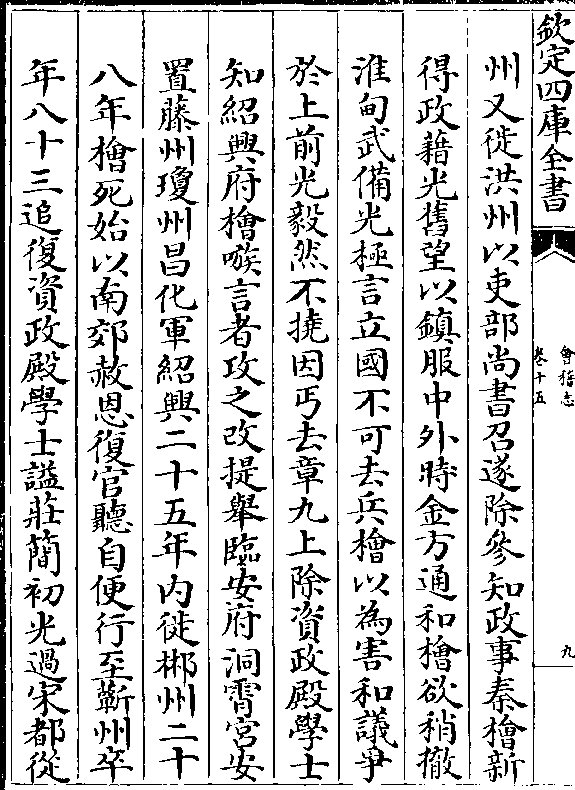 欽定四庫全書
會稽志
卷十五
九
州又徙洪州以吏部尚書召遂除參知政事秦檜新
得政藉光舊望以鎮服中外時金方通和檜欲稍撤
淮甸武備光極言立國不可去兵檜以為害和議爭
於上前光毅然不撓因丐去章九上除資政殿學士
知紹興府檜嗾言者攻之改提舉臨安府洞霄宮安
置藤州瓊州昌化軍紹興二十五年內徙郴州二十
八年檜死始以南郊赦恩復官聽自便行至蘄州卒
年八十三追復資政殿學士謚莊簡初光過宋都從